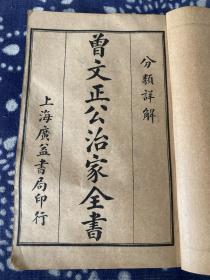 分類詳解
曾文正公治家全書
上海廣益書局印行